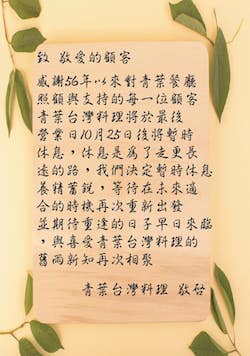 致 敬愛的顧客
感謝56年以來對青葉餐廳
照顧與支持的每一位顧客
青葉台灣料理將於最後
營業日10月25日後將暫時
休息，休息是為了走更長
遠的路，我們決定暫時休息
養精蓄銳，等待在未來適
合的時機再次重新出發
並期待重逢的日子早日來臨
，與喜愛青葉台灣料理的
舊雨新知再次相聚
青葉台灣料理 敬啟